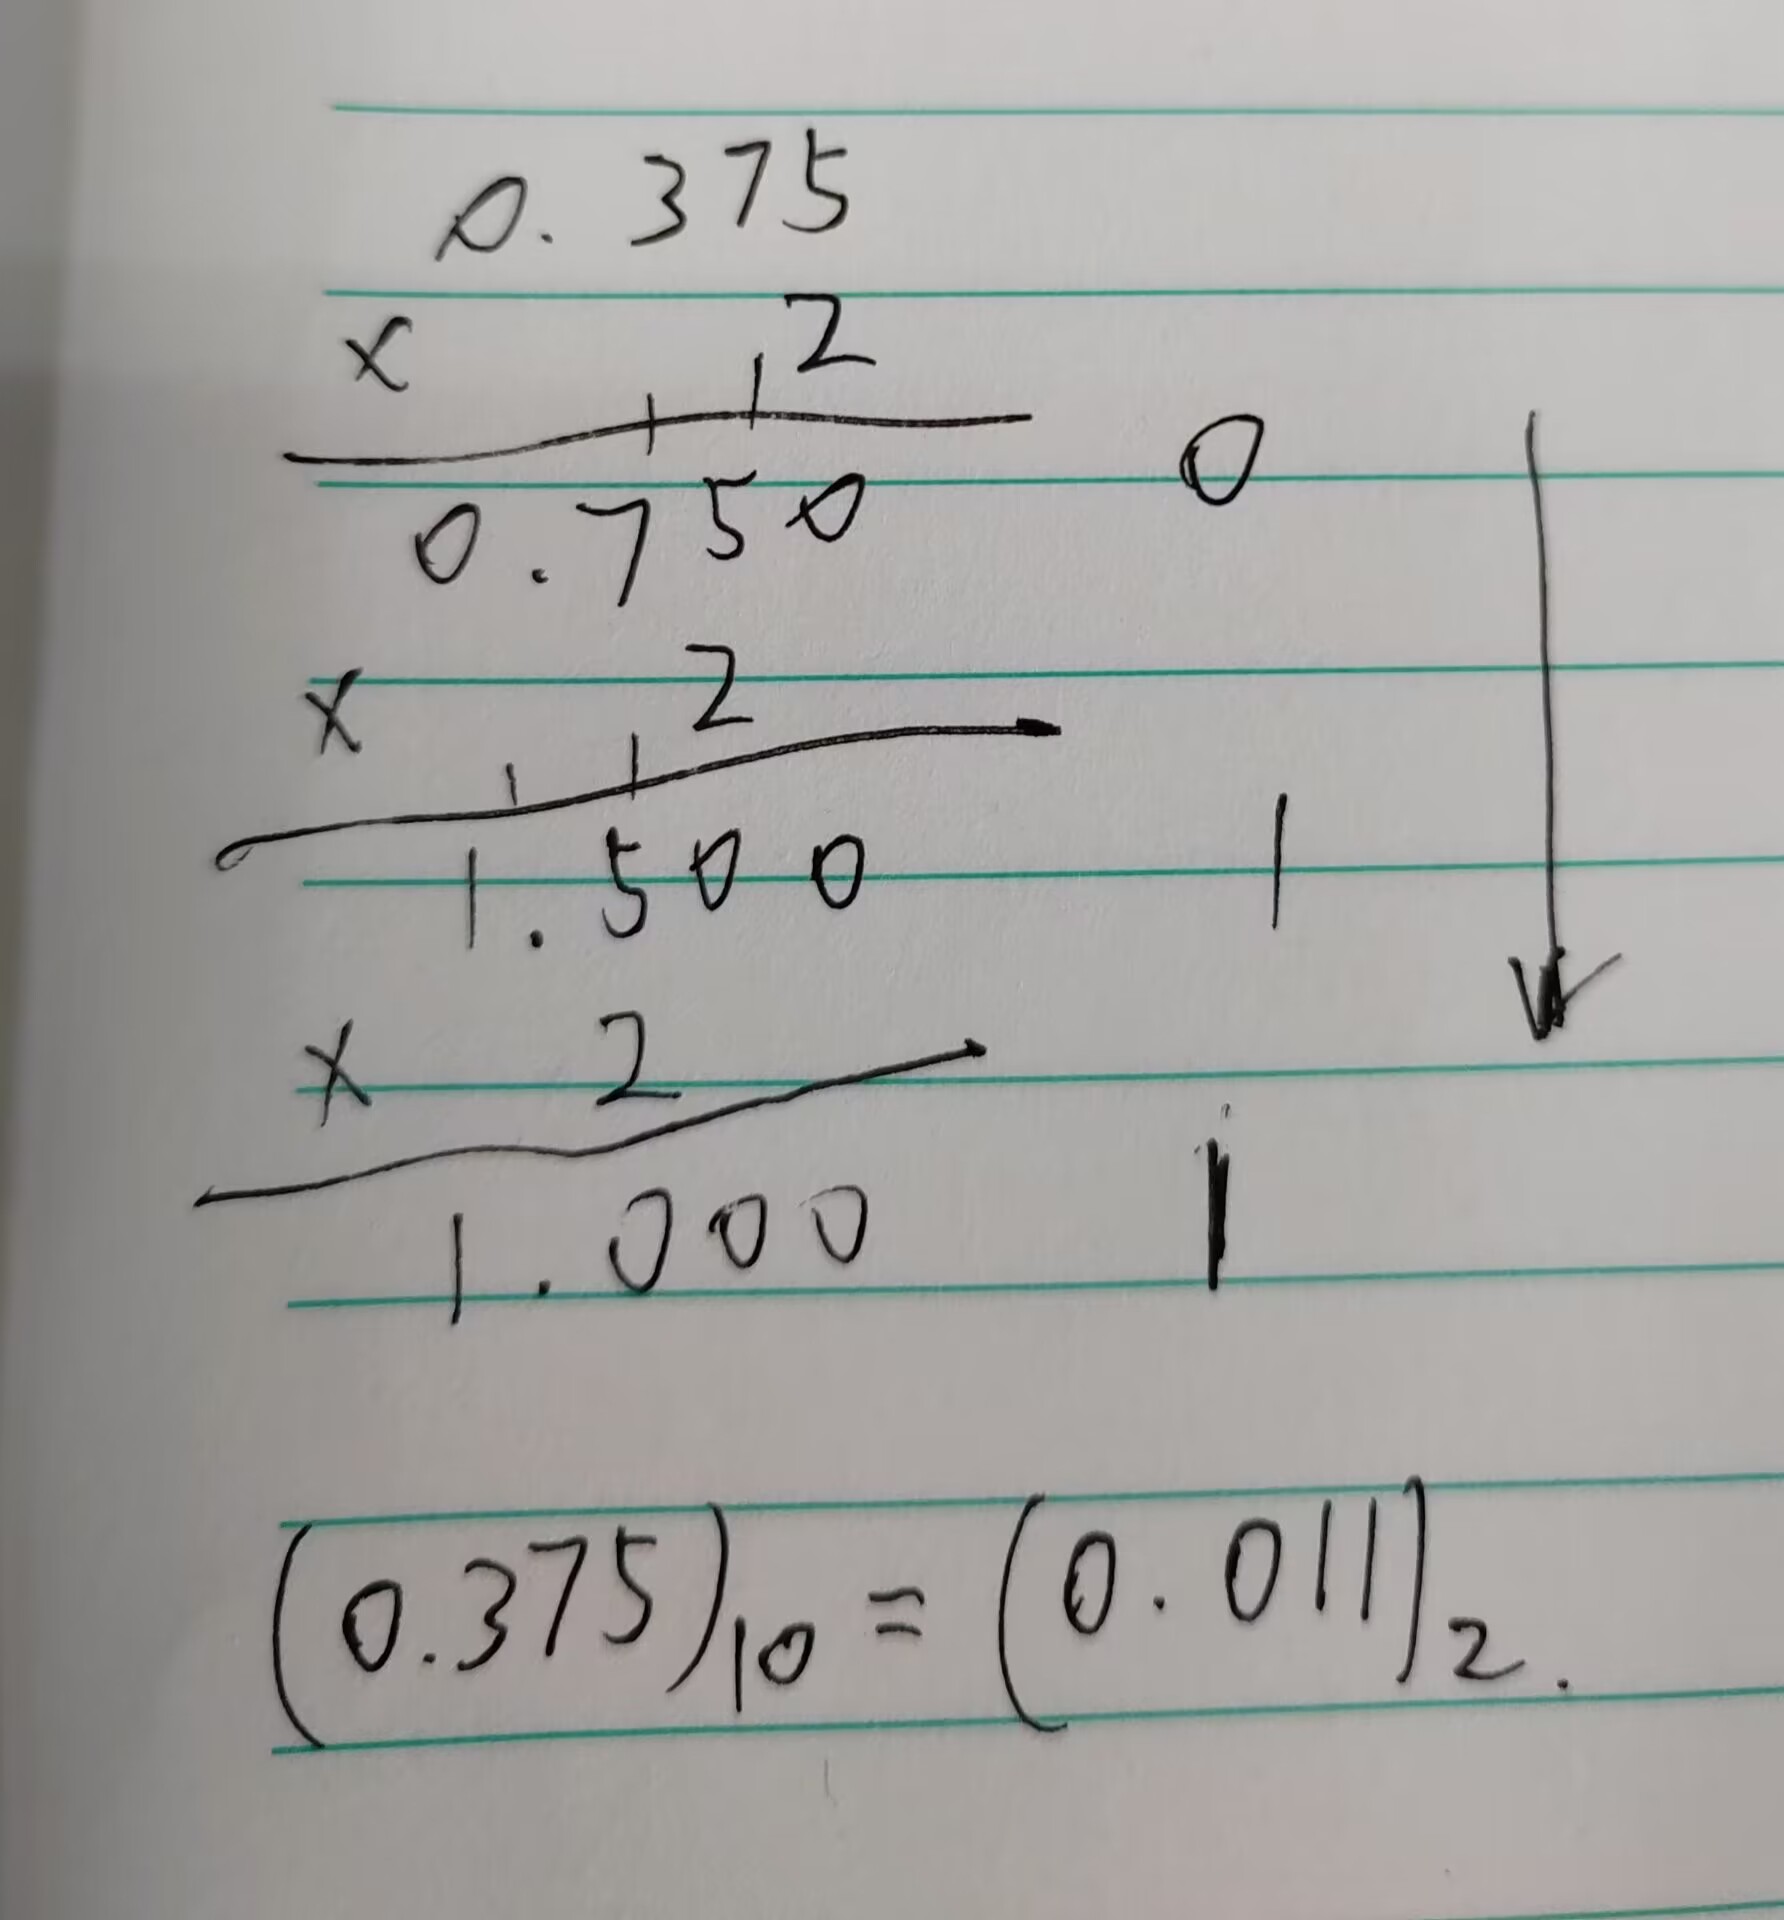 0.375
× 2
0.750 0
× 2
1.500 1
× 2
1.000 1
(0.375)₁₀ = (0.011)₂.